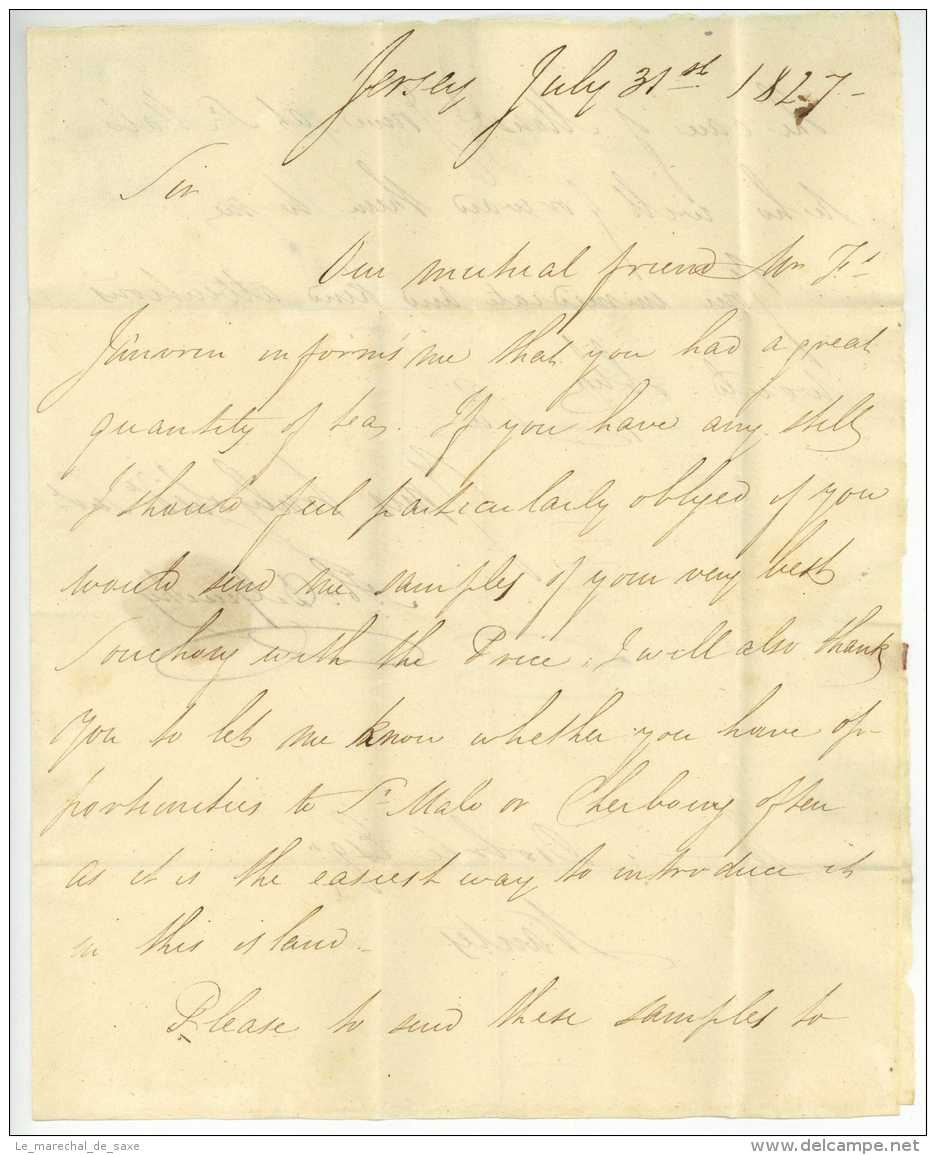 Jersey July 31st 1827-
Sir
Our mutual friend Mr Fs
Janvrin informs me that you had a great
quantity of tea. If you have any still
I should feel particularly oblyed if you
would send me samples of your very best
Souchong with the Price. I will also thank
you to let me know whether you have op-
portunities to St Malo or Cherbourg often
as it is the easiest way to introduce it
in this island-
Please to send these samples to
Le_marechal_de_saxe
www.delcampe.net